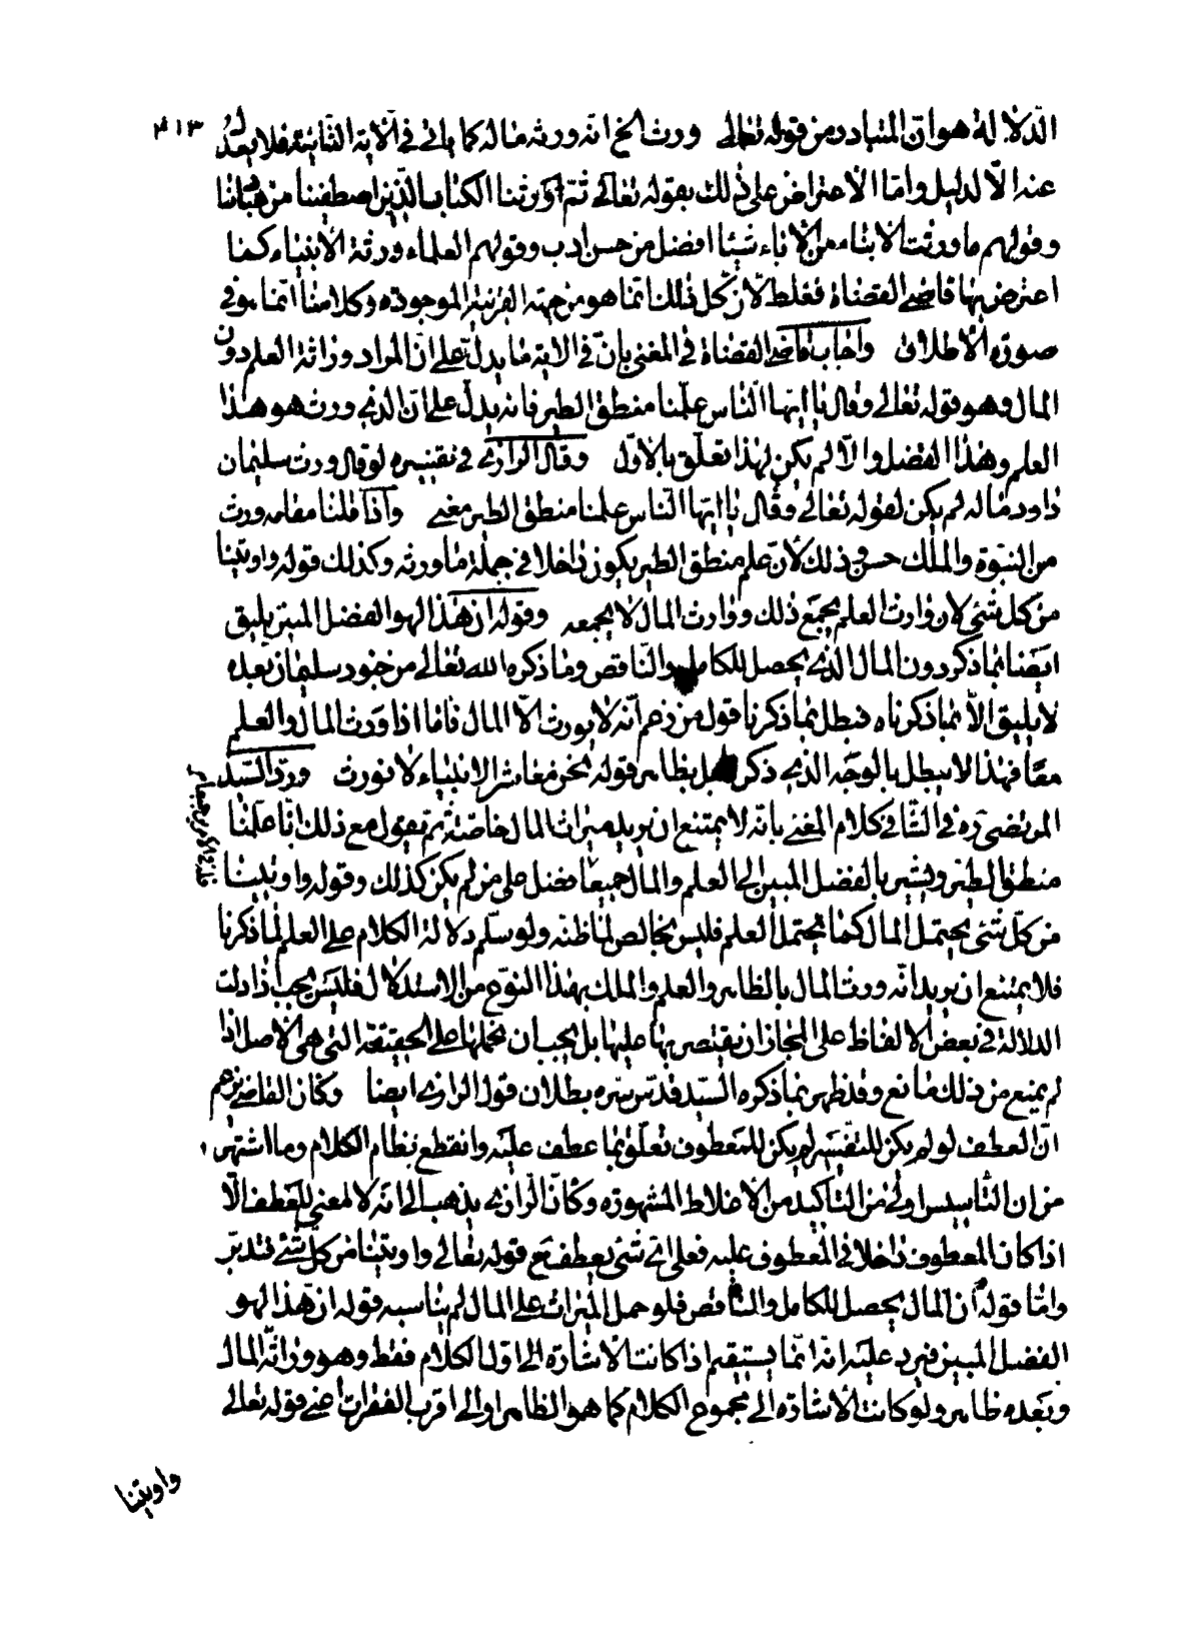 ٣١٣
الدّلالة هو انّ المتبادر من قوله تعالى ورث الخ انّه ورثه ماله كما ياتي في الآية الثانية فلا يعدل
عنه الّا لدليل وامّا الاعتراض على ذلك بقوله تعالى ثمّ اورثنا الكتاب الّذين اصطفينا من عبادنا
وقولهم ما ورثت الابناء من الآباء شيئا افضل من حسن ادب وقولهم العلماء ورثة الانبياء كما
اعترض بها قاضي القضاة فغلط لانّ كلّ ذلك انّما هو من جهة القرينة الموجودة وكلامنا انّما هو في
صورة الاطلاق واجاب قاضي القضاة في المغني بانّ في الآية ما يدلّ على انّ المراد وراثة العلم دون
المال وهو قوله تعالى وقال يا ايّها النّاس علّمنا منطق الطير فانّه يدلّ على انّ الذي ورث هو هذا
العلم وهذا الفضل والّا لم يكن لهذا تعلّق بالاوّل وقال الرازي في تفسيره لو قال ورث سليمان
داود ماله لم يكن لقوله تعالى وقال يا ايّها النّاس علمنا منطق الطير معنى واذا قلنا مقامه ورث
من النبوّة والملك حسن ذلك لانّ علم منطق الطير يكون داخلا في جملة ما ورثه وكذلك قوله واوتينا
من كل شيء لان وارث العلم يجمع ذلك ووارث المال لا يجمعه وقوله ان هذا لهو الفضل المبين يليق
ايضا بما ذكر دون المال الذي يحصل للكامل والنّاقص وما ذكره الله تعالى من جنود سليمان بعده
لا يليق الّا بما ذكرناه فبطل بما ذكرنا قول من زعم انّه لا يورث الّا المال فامّا اذا ورث المال والعلم
معًا فهذا لا يبطل بالوجه الذي ذكر بل بظاهر قوله نحن معاشر الانبياء لا نورث وردّ السيّد
المرتضى ره في الشّافي كلام المغني بانّه لا يمتنع ان يريد ميراث المال خاصّة ثم يقول مع ذلك انّا علّمنا
منطق الطير ويشير بالفضل المبين الى العلم والمال جميعا فضل على من لم يكن كذلك وقوله واوتينا
من كلّ شيء يحتمل المال كما يحتمل العلم فليس بخالص لما ظنّه ولو سلّم دلالة الكلام على العلم لما ذكرنا
فلا يمتنع ان يريد انّه ورث المال بالظاهر والعلم والملك بهذا النوع من الاستدلال فليس يجب اذا دلت
الدلالة في بعض الالفاظ على المجاز ان يقتصر بها عليها بل يجب ان نحملها على الحقيقة التي هي الاصل اذا
لم يمنع من ذلك مانع وقد ظهر بما ذكره السيّد قدّس سره بطلان قول الرازي ايضا وكان القاضي يزعم
انّ العطف لو لم يكن للتفسير لم يكن للمعطوف تعلّق بما عطف عليه وانقطع نظام الكلام وما اشتهر
من ان التاسيس اولى من التاكيد من الاغلاط المشهورة وكانّ الرازي يذهب الى انّه لا معنى للعطف الّا
اذا كان المعطوف داخلا في المعطوف عليه فعلى ايّ شيء يعطف مع قوله تعالى واوتينا من كلّ شيء فتدبّر
وامّا قوله ان المال يحصل للكامل والنّاقص فلو حمل الميراث على المال لم يناسبه قوله ان هذا لهو
الفضل المبين فيرد عليه انه انّما يستقيم اذا كانت الاشارة الى اوّل الكلام فقط وهو وراثة المال
وبعده ظاهر ولو كانت الاشارة الى مجموع الكلام كما هو الظاهر او الى اقرب الفقرات اعني قوله تعالى
واوتينا